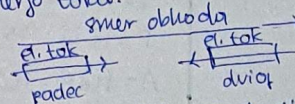 smer obhoda
el. tok el. tok
padec dvig